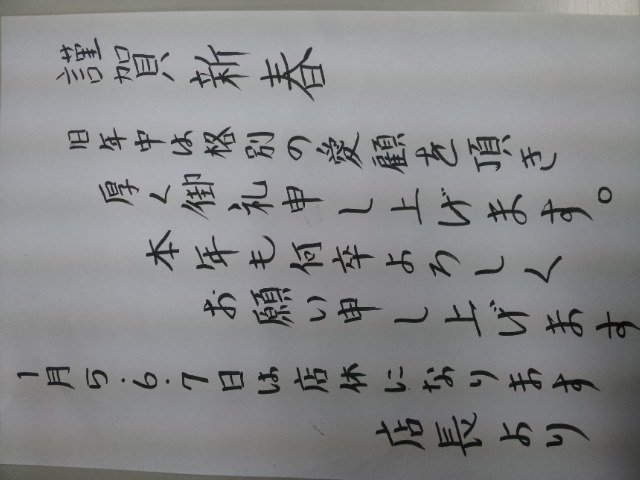 謹賀新春
旧年中は格別の愛顧を頂き
厚く御礼申し上げます。
本年も何卒よろしく
お願い申し上げます
1月5.6.7日は店休になります
店長より